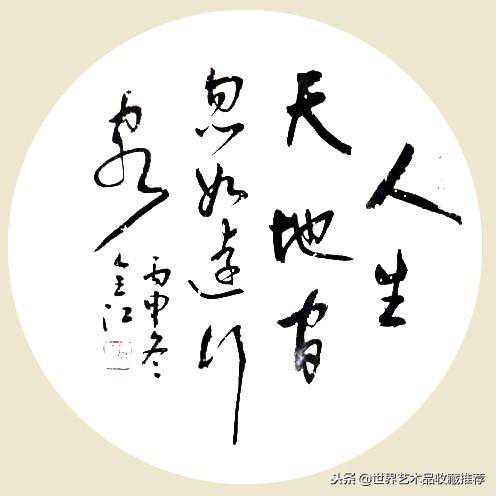 人生
天地間
忽如遠行
客
丙申冬
江
头条 @世界艺术品收藏推荐